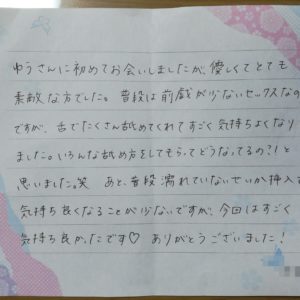 ゆうさんに初めてお会いしましたが、優しくてとても
素敵な方でした。普段は前戯が少ないセックスなの
ですが、舌でたくさん舐めてくれてすごく気持ちよくなり
ました。いろんな舐め方をしてもらってどうなってるの?!と
思いました。笑 あと、普段濡れていないせいか挿入も
気持ち良くなることが少ないですが、今回はすごく
気持ち良かったです♡ ありがとうございました!